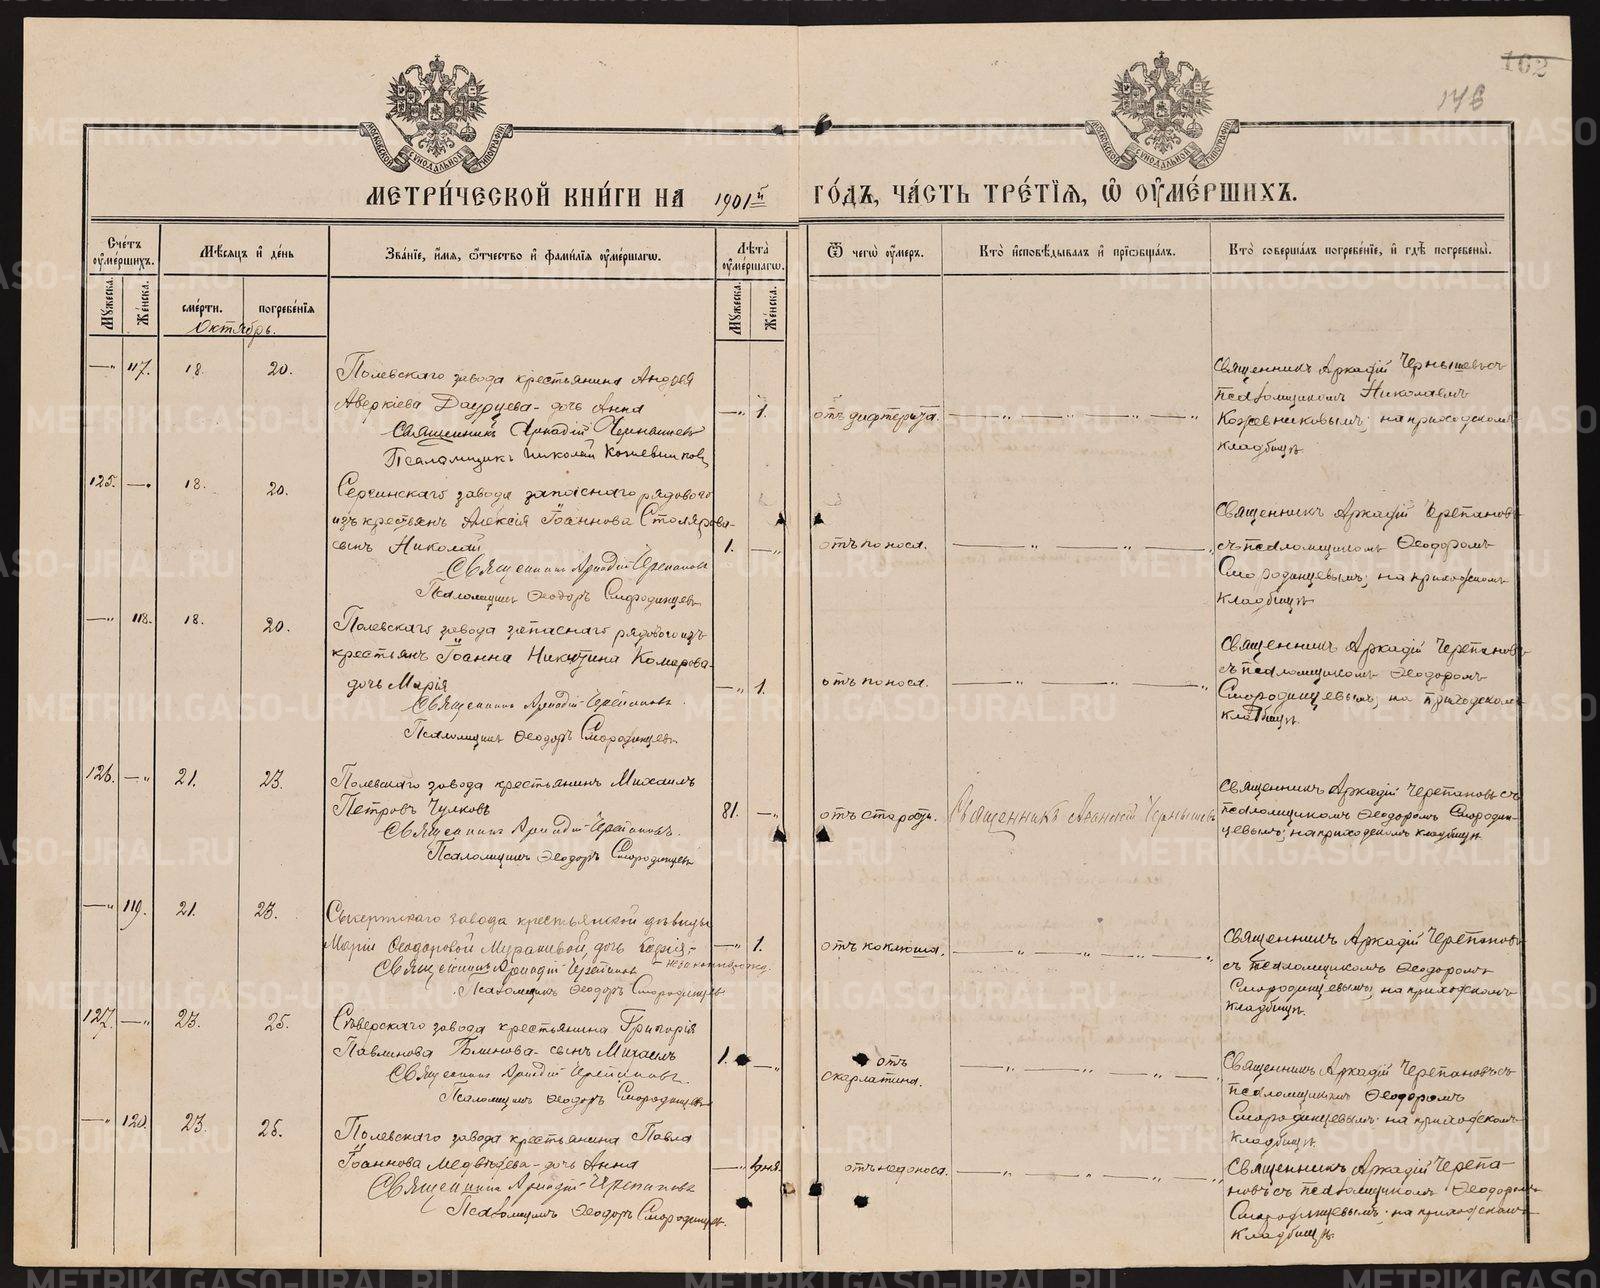 162
176
МЕТРИ́ЧЕСКОЙ КНИ́ГИ НА 1901й ГО́ДЪ, ЧА́СТЬ ТРЕ́ТЇѦ, Ѡ ОУ҆МЕ́РШИХЪ.
Сче́тъ оу҆ме́ршихъ.
Мꙋ́жеска.
Же́нска.
Мѣ́сѧцъ и҆ де́нь
сме́рти.
погребе́нїѧ
Октябрь.
Зва́нїе, и҆́мѧ, ѻ҆́тчество и҆ фами́лїѧ оу҆ме́ршагѡ.
Лѣ́та оу҆ме́ршагѡ.
Мꙋ́жеска.
Же́нска.
Ѿ чегѡ̀ оу҆́меръ.
Кто̀ и҆сповѣ́дывалъ и҆ прїѡбща́лъ.
Кто̀ соверша́лъ погребе́нїе, и҆ гдѣ̀ погребены̀.
— „ 117. 18. 20.
Полевскаго завода крестьянина Андрея
Аверкіева Даурцева - дочь Анна
Священникъ Аркадій Чернышевъ
Псаломщикъ Николай Кожевниковъ
— „ 1.
отъ дифтерита.
Священникъ Аркадій Чернышевъ съ
псаломщикомъ Николаемъ
Кожевниковымъ; на приходскомъ
кладбищѣ.
125. — „ 18. 20.
Сергинскаго завода запаснаго рядового
изъ крестьянъ Алексія Іоаннова Столярова-
сынъ Николай
Священникъ Аркадій Черепановъ
Псаломщикъ Ѳеодоръ Смородинцевъ
1. — „
отъ поноса.
Священникъ Аркадій Черепановъ
съ псаломщикомъ Ѳеодоромъ
Смородинцевымъ; на приходскомъ
кладбищѣ
— „ 118. 18. 20.
Полевскаго завода запаснаго рядового изъ
крестьянъ Іоанна Никитина Комарова-
дочь Марія
Священникъ Аркадій Черепановъ.
Псаломщикъ Ѳеодоръ Смородинцевъ
— „ 1.
отъ поноса.
Священникъ Аркадій Черепановъ
съ псаломщикомъ Ѳеодоромъ
Смородинцевымъ; на приходскомъ
кладбищѣ.
126. — „ 21. 23.
Полевскаго завода крестьянинъ Михаилъ
Петровъ Чулковъ
Священникъ Аркадій Черепановъ.
Псаломщикъ Ѳеодоръ Смородинцевъ
81. — „
отъ старости.
Священникъ Чернышевъ
Священникъ Аркадій Черепановъ съ
псаломщикомъ Ѳеодоромъ Смородин-
цевымъ; на приходскомъ кладбищѣ.
— „ 119. 21. 23.
Сысертскаго завода крестьянской дѣвицы
Маріи Ѳеодоровой дочь
Священникъ Аркадій Черепановъ
Псаломщикъ Ѳеодоръ Смородинцевъ
— „ 1.
отъ коклюша.
Священникъ Аркадій Черепановъ
съ псаломщикомъ Ѳеодоромъ
Смородинцевымъ; на приходскомъ
кладбищѣ.
127. — „ 23. 25.
Сѣверскаго завода крестьянина Григорія
Павлинова Блинова - сынъ Михаилъ
Священникъ Аркадій Черепановъ.
Псаломщикъ Ѳеодоръ Смородинцевъ
1. — „
отъ
скарлатина.
Священникъ Аркадій Черепановъ съ
псаломщикомъ Ѳеодоромъ
Смородинцевымъ; на приходскомъ
кладбищѣ.
— „ 120. 23. 25.
Полевскаго завода крестьянина Павла
Іоаннова Медвѣдева - дочь Анна
Священникъ Аркадій Черепановъ
Псаломщикъ Ѳеодоръ Смородинцевъ.
— „ дня.
отъ недоноса.
Священникъ Аркадій Черепа-
новъ съ псаломщикомъ Ѳеодоромъ
Смородинцевымъ; на приходскомъ
кладбищѣ.
METRIKI.GASO-URAL.RU